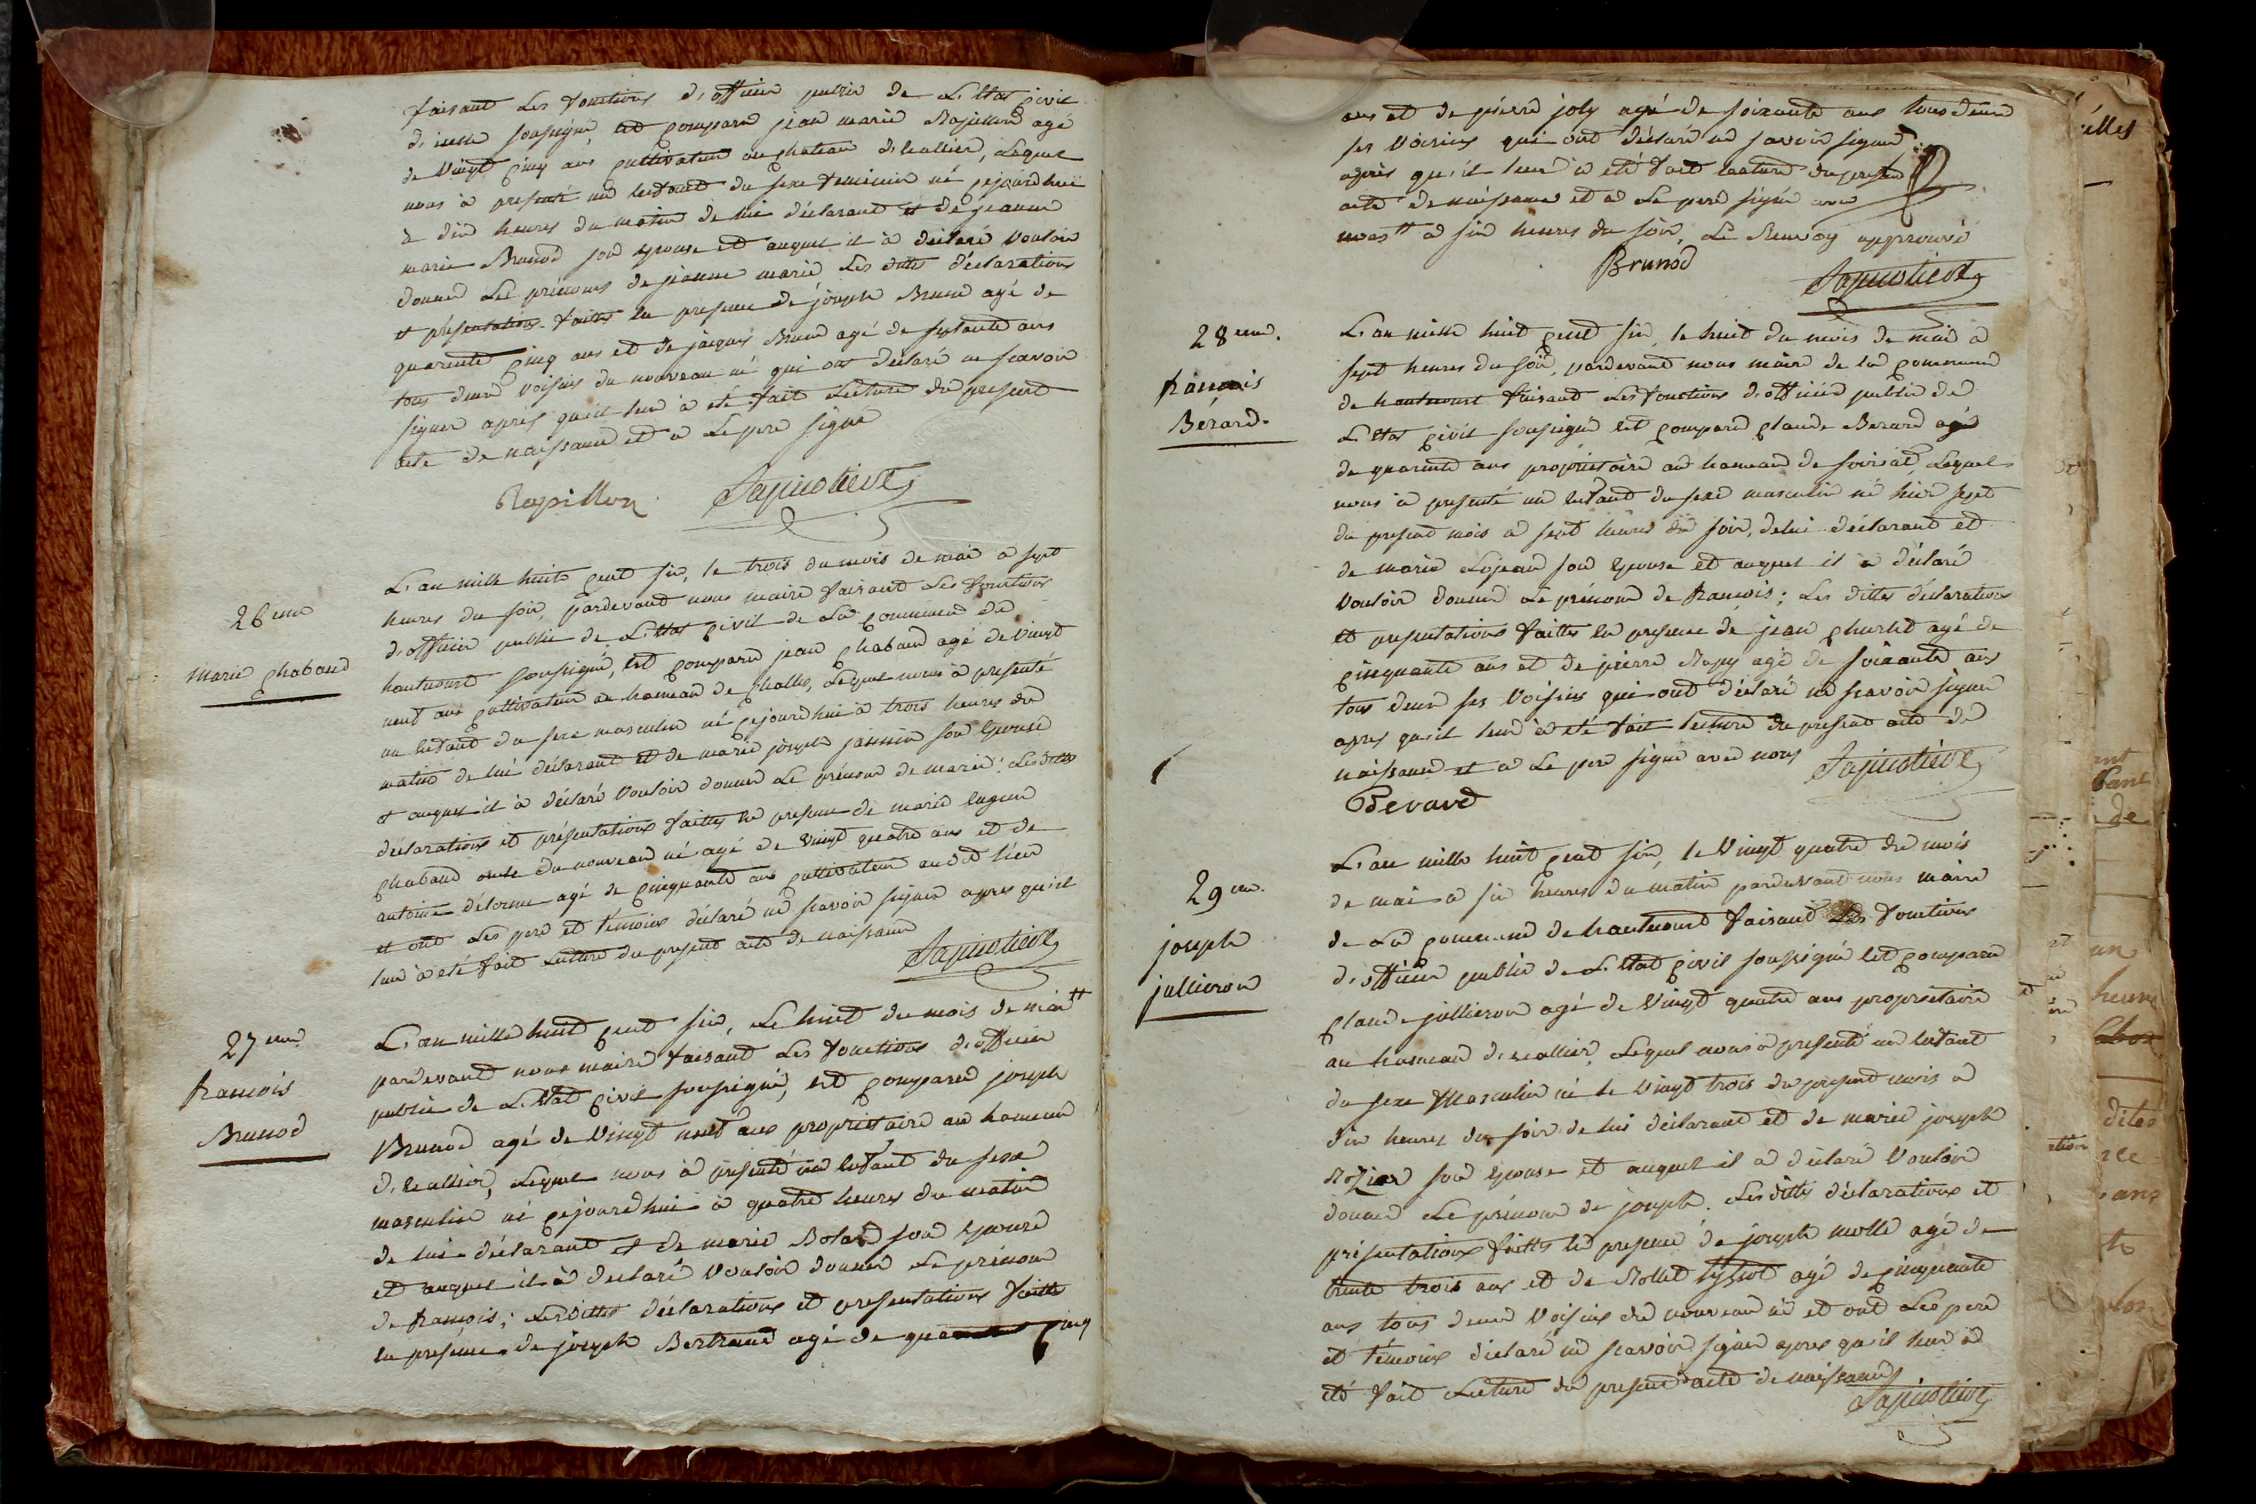 faisant les fonctions d'officier public de L'Etat civil
soussigné est comparu jean marie Rapillon agé
de vingt cinq ans cultivateur au chateau d'heallier, Lequel
nous à presenté un enfant du sexe feminin né cejourdhui
à dix heures du matin de lui déclarant et de jeanne
marie Brunod son epouse et auquel il à déclaré vouloir
donner Les prénoms de jeanne marie Les dittes déclarations
et présentations faittes en presence de joseph Brunod agé de
quarente cinq ans et de jacques Brunod agé de septante ans
tous deux voisins du nouveau né qui ont déclaré ne scavoir
signer aprés quil leur à eté fait Lecture du present
acte de naissance et a Le pere signé
Rapillon
26eme
marie chabaud
L'an mille huit cent six, le trois du mois de mai a sept
heures du soir, pardevant nous maire faisant Les fonctions
d'officier public de L'Etat civil de La commune de
hautecourt soussigné, est comparu jean chabaud agé de vingt
neuf ans cultivateur au hameau de challes, Lequel nous à presenté
un enfant du sexe masculin né cejourdhui à trois heures du
matin de lui déclarant et de marie joseph son Epouse
et auquel il à déclaré vouloir donner Le prénom de marie; Les dittes
déclarations et présentations faittes en presence de marie
chabaud oncle du nouveau né agé de vingt quatre ans et de
antoine délorme agé de cinquante ans cultivateur audit lieu
et ont Les pere et témoins déclaré ne scavoir signer apres quil
leur à eté fait Lecture du present acte de naissance
27eme
francois
Brunod
L'an mille huit cent six, Le huit du mois de mai tt
pardevant nous maire faisant Les fonctions d'officier
public de L'Etat civil soussigné, est comparu joseph
Brunod agé de vingt neuf ans propriétaire au hameau
d'heallier, Lequel nous à présenté un enfant du sexe
masculin né cejourdhui à quatre heures du matin
de lui déclarant et de marie Bolard son epouse
et auquel il à declaré vouloir donner Le prénom
de francois; Les dittes déclarations et presentations faittes
en présence de joseph Bertrand agé de quarante cinq
ans et de pierre joly agé de soixante ans tous deux
ses voisins qui ont déclaré ne savoir signer
aprés qu'il leur à eté fait lecture du present
acte de naissance et a Le pere signé avec
nous tt a six heures du soir, Le Renvoy approuvé
Brunod
28eme.
francois
Bérard.
L'an mille huit cent six, le huit du mois de mai à
sept heures du soir, pardevant nous maire de la commune
de hautecourt faisant Les fonctions d'officier public de
L'Etat civil soussigné est comparu claude Berard agé
de quarente ans propriétaire au hameau de, Lequel
nous à presenté un enfant du sexe masculin né hier sept
du present mois a sept heures du soir, de lui déclarant et
de marie son Epouse et auquel il a déclaré
vouloir donner Le prénom de francois; Les dittes déclarations
et presentations faittes en presence de jean agé de
cinquante ans et de pierre agé de soixante ans
tous deux ses voisins qui ont déclaré ne scavoir signer
apres quil leur à eté fait lecture du present acte de
naissance et a Le pere signé avec nous
Berard
29eme.
joseph
jullieron
L'an mille huit cent six, le vingt quatre du mois
de mai a six heures du matin pardevant nous maire
de La commune de hautecourt faisant Les fonctions
d'officier public de L'Etat civil soussigné est comparu
claude jullieron agé de vingt quatre ans proprietaire
au hameau d'heallier, Lequel nous à presenté un enfant
du sexe masculin né le vingt trois du present mois à
dix heures du soir de lui déclarant et de marie joseph
Rozier son Epouse et auquel il a déclaré vouloir
donner Le prénom de joseph. Les dittes déclarations et
présentations faittes en presence de joseph molle agé de
trente trois ans et de agé de cinquante
ans tous deux voisins du nouveau né et ont Les pere
et témoins déclaré ne scavoir signer apres quil leur à
eté fait Lecture du present acte de naissance